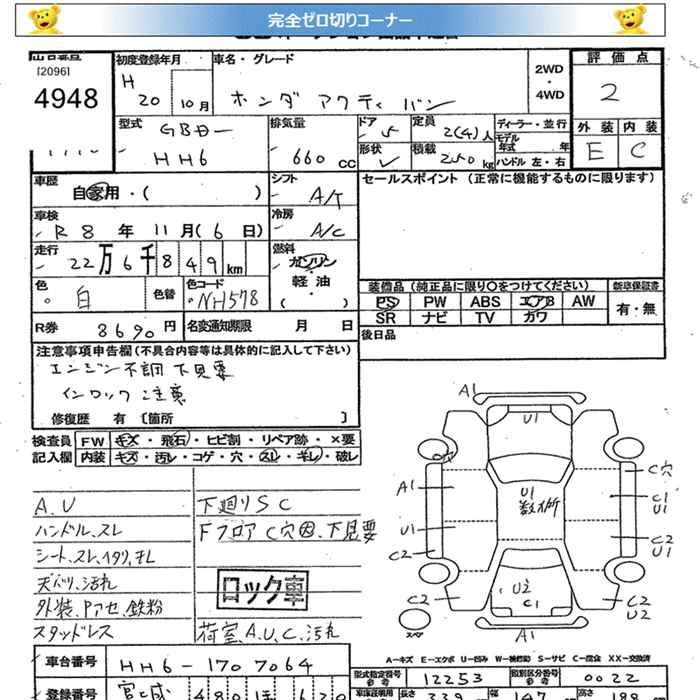 完全ゼロ切りコーナー
[2096]
4948
初度登録年月
H 20 年 10 月
車名・グレード
ホンダ アクティ バン
2WD
・
4WD
評価点
2
外装 内装
E C
型式
GBDー
HH6
排気量
660 CC
ドア 5
定員 2(4)人
形状
積載 250 kg
ディーラー・並行
モデル年式 年
ハンドル 左・右
車歴
自家用・( )
シフト
A/T
車検
R 8 年 11 月 (6 日)
冷房
A/C
走行
22万6千849km
燃料
ガソリン
軽油
・( )
色
白
色替
色コード
NH578
R券 8690 円
名変通知期限 月 日
セールスポイント (正常に機能するものに限ります)
装備品 (純正品に限り○をつけてください) 新車保証書
PS PW ABS エアB AW
SR ナビ TV カワ
有・無
後日品
注意事項申告欄 (不具合内容等は具体的に記入して下さい)
エンジン不調 下見要
インロック注意
修復歴 有 [箇所 ]
検査員 FW キズ・飛石・ヒビ割・リペア跡・×要
記入欄 内装 キズ・汚レ・コゲ・穴・スレ・ギレ・破レ
A.U
ハンドル.スレ
シート.スレ.イタリ.キレ
天バリ.汚れ
外装.Pアセ.鉄粉
スタッドレス
下廻りSC
Fフロア C穴図.下見要
ロック車
荷室.A.U.C.汚れ
A1
U1
A1
U1
C2
C2
U1
数ヶ所
U2
C1
C穴
C1
U1
C2
U1
C2
U2
スペア
A1
A-キズ E-エクボ U-凹み W-補修跡 S-サビ C-腐食 XX-交換済
車台番号 HH6-1707064
型式指定番号 12253
類別区分番号 0022
登録番号 宮城 480